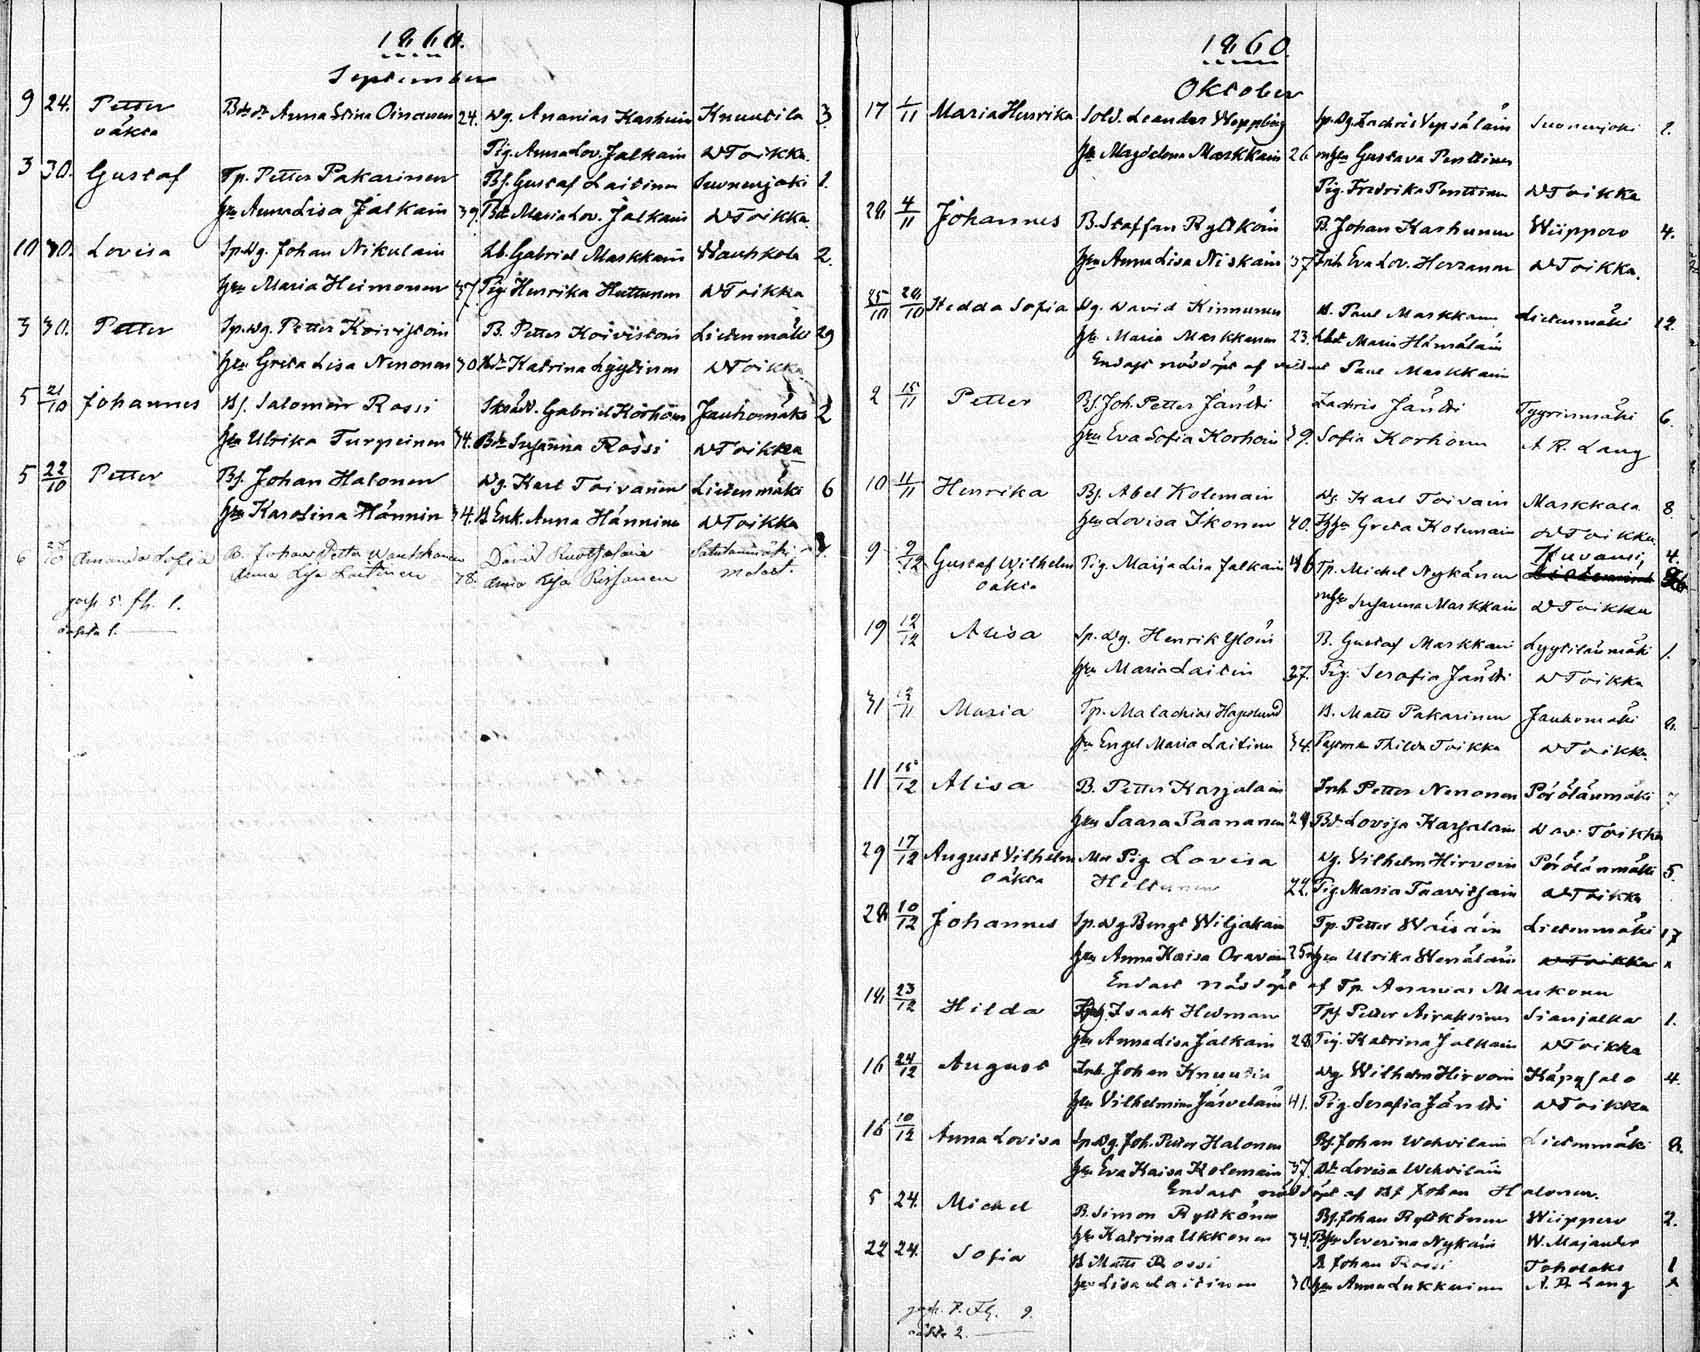 1860.
September
9 24. Petter Bdr Anna Stina Oinanen 24. Dg. Ananias Kashunin Knuutila 3.
oäkta Pig. Anna Lov. Jalkain D Toikka.
3 30. Gustaf Tp. Petter Pakarinen Bs. Gustaf Laitinen Suonenjoki 1.
hu Anna Lisa Jalkain 39 Bdr Maria Lov. Jalkain D Toikka
10 30. Lovisa Sp. Dg. Johan Nikulain Lb. Gabriel Markkain Wauhkola 2.
hu Maria Heimonen 37. Pig. Henrika Huttunen D Toikka
3 30. Petter Sp. Dg. Petter Koivistoin B. Petter Koivistoin Lietenmäki 29
hu Greta Lisa Nenonen 30 Katrina Lyytinen D Toikka
5 21/10 Johannes Bs. Salomon Rossi Gabriel Korhoin Jauhomäki 2
hu Ulrika Turpeinen 34. Bdr Susanna Rossi D Toikka
5 22/10 Petter Bs. Johan Halonen Dg. Karl Toivanen Lietenmäki 6
hu Karolina Hännin 34. B Enk. Anna Hännin D Toikka
6 Amanda Sofia B. Johan Petter David
Anna Lisa Laitinen 78. Anna Lisa
5. fl. 1.
oäkta 1.
1860.
Oktober
17 1/11 Maria Henrika Sold. Leander Wepplög Sp. Dg. Zachris Vepsäläin Suonenjoki 1.
hu Magdelena Markkain 26 mhu Gustava Penttinen
Pig. Fredrika Penttinen D Toikka
28 4/11 Johannes B. Staffan Rytköin B. Johan Kashunen Wiippero 4.
hu Anna Lisa Niskain 37 Inh Eva Lov. Herranen D Toikka.
25/10 28/10 Hedda Sofia Dg. David Kinnunen B. Paul Markkain Lietenmäki 12.
hu Maria Markkanen 23. Maria Hämäläin
Endast nöddöpt af Paul Markkain
2 15/11 Petter Bs. Joh. Petter Jäntti Zachris Jäntti Tyyrinmäki 6.
hu Eva Sofia Korhoin 39. Sofia Korhonen A R. Lang
10 11/11 Henrika Bs. Abel Kolemain Dg. Karl Toivain Markkala 8.
hu Lovisa Ikonen 40. Greta Kolemain D Toikka.
9 9/12 Gustaf Wilhelm Pig. Maija Lisa Jalkain 46 Tp. Michel Nykänen Kuvansi, 4.
oäkta mhu Susanna Markkain D Toikka
19 12/12 Alisa Sp. Dg. Henrik Ylöin B. Gustaf Markkain Lyytilänmäki 1.
hu Maria Laitin 37. Pig. Serafia Jäntti D Toikka
31 Maria Tp. Malachias Hagelund B. Matts Pakarinen Jauhomäki 8.
hu Engel Maria Laitinen 34. Thilda Toikka D Toikka.
11 15/12 Alisa B. Petter Karjalain Inh Petter Nenonen Pörölänmäki 7
hu Saara Paananen 24 Bdr Lovisa Karjalain Dav. Toikka
29 17/12 August Vilhelm Pig Lovisa Dg. Vilhelm Hirvoin Pörölänmäki 5.
oäkta Hiltunen 22. Pig. Maria Taavitsain D Toikka
28 10/12 Johannes Sp. Dg Bengt Wiljakain Tp. Petter Wäisäin Lietenmäki 17
hu Anna Kaisa Oravain 25 mhu Ulrika Wenäläin D Toikka
Endast nöddöpt af Tp. Ananias Maukonen
18 23/12 Hilda Isaak Hedman Tps. Petter Airaksinen Sianjalka 1.
hu Anna Lisa Jalkain 28. Pig. Katrina Jalkain D Toikka
16 24/12 August Inh. Johan Knuutin Dg Wilhelm Hirvoin Käpysalo 4.
hu Vilhelmina Järveläin 41. Pig. Serafia Jäntti D Toikka
16 10/12 Anna Lovisa Sp. Dg. Joh. Petter Halonen Bs. Johan Wehviläin Lietenmäki 8.
hu Eva Kaisa Kolemain 37. Lovisa Wehviläin
Endast nöddöpt af Bs Johan Halonen.
5 24. Michel B. Simon Rytkönen Bs. Johan Rytkönen Wiippero 2.
hu Katrina Ukkonen 34. Severina Nykäin W. Majander
22 24. Sofia B Matts Rossi B Johan Rossi Toholaks 1
hu Lisa Laitinen 30 hu Anna Lukkarinen A. R Lang
9.
oäkta 2.